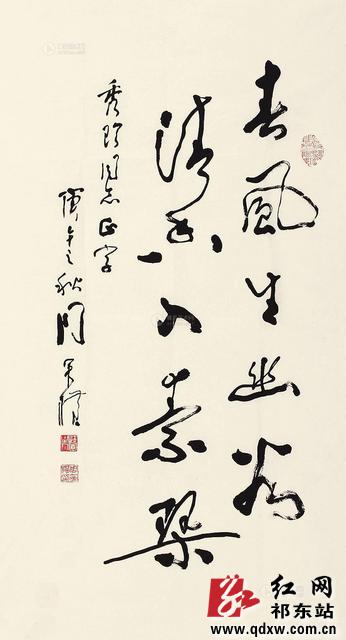 春風生幽谷
清入素琴
秀珍同志正字
庚午之秋
红网
祁东站
www.qdxw.com.cn